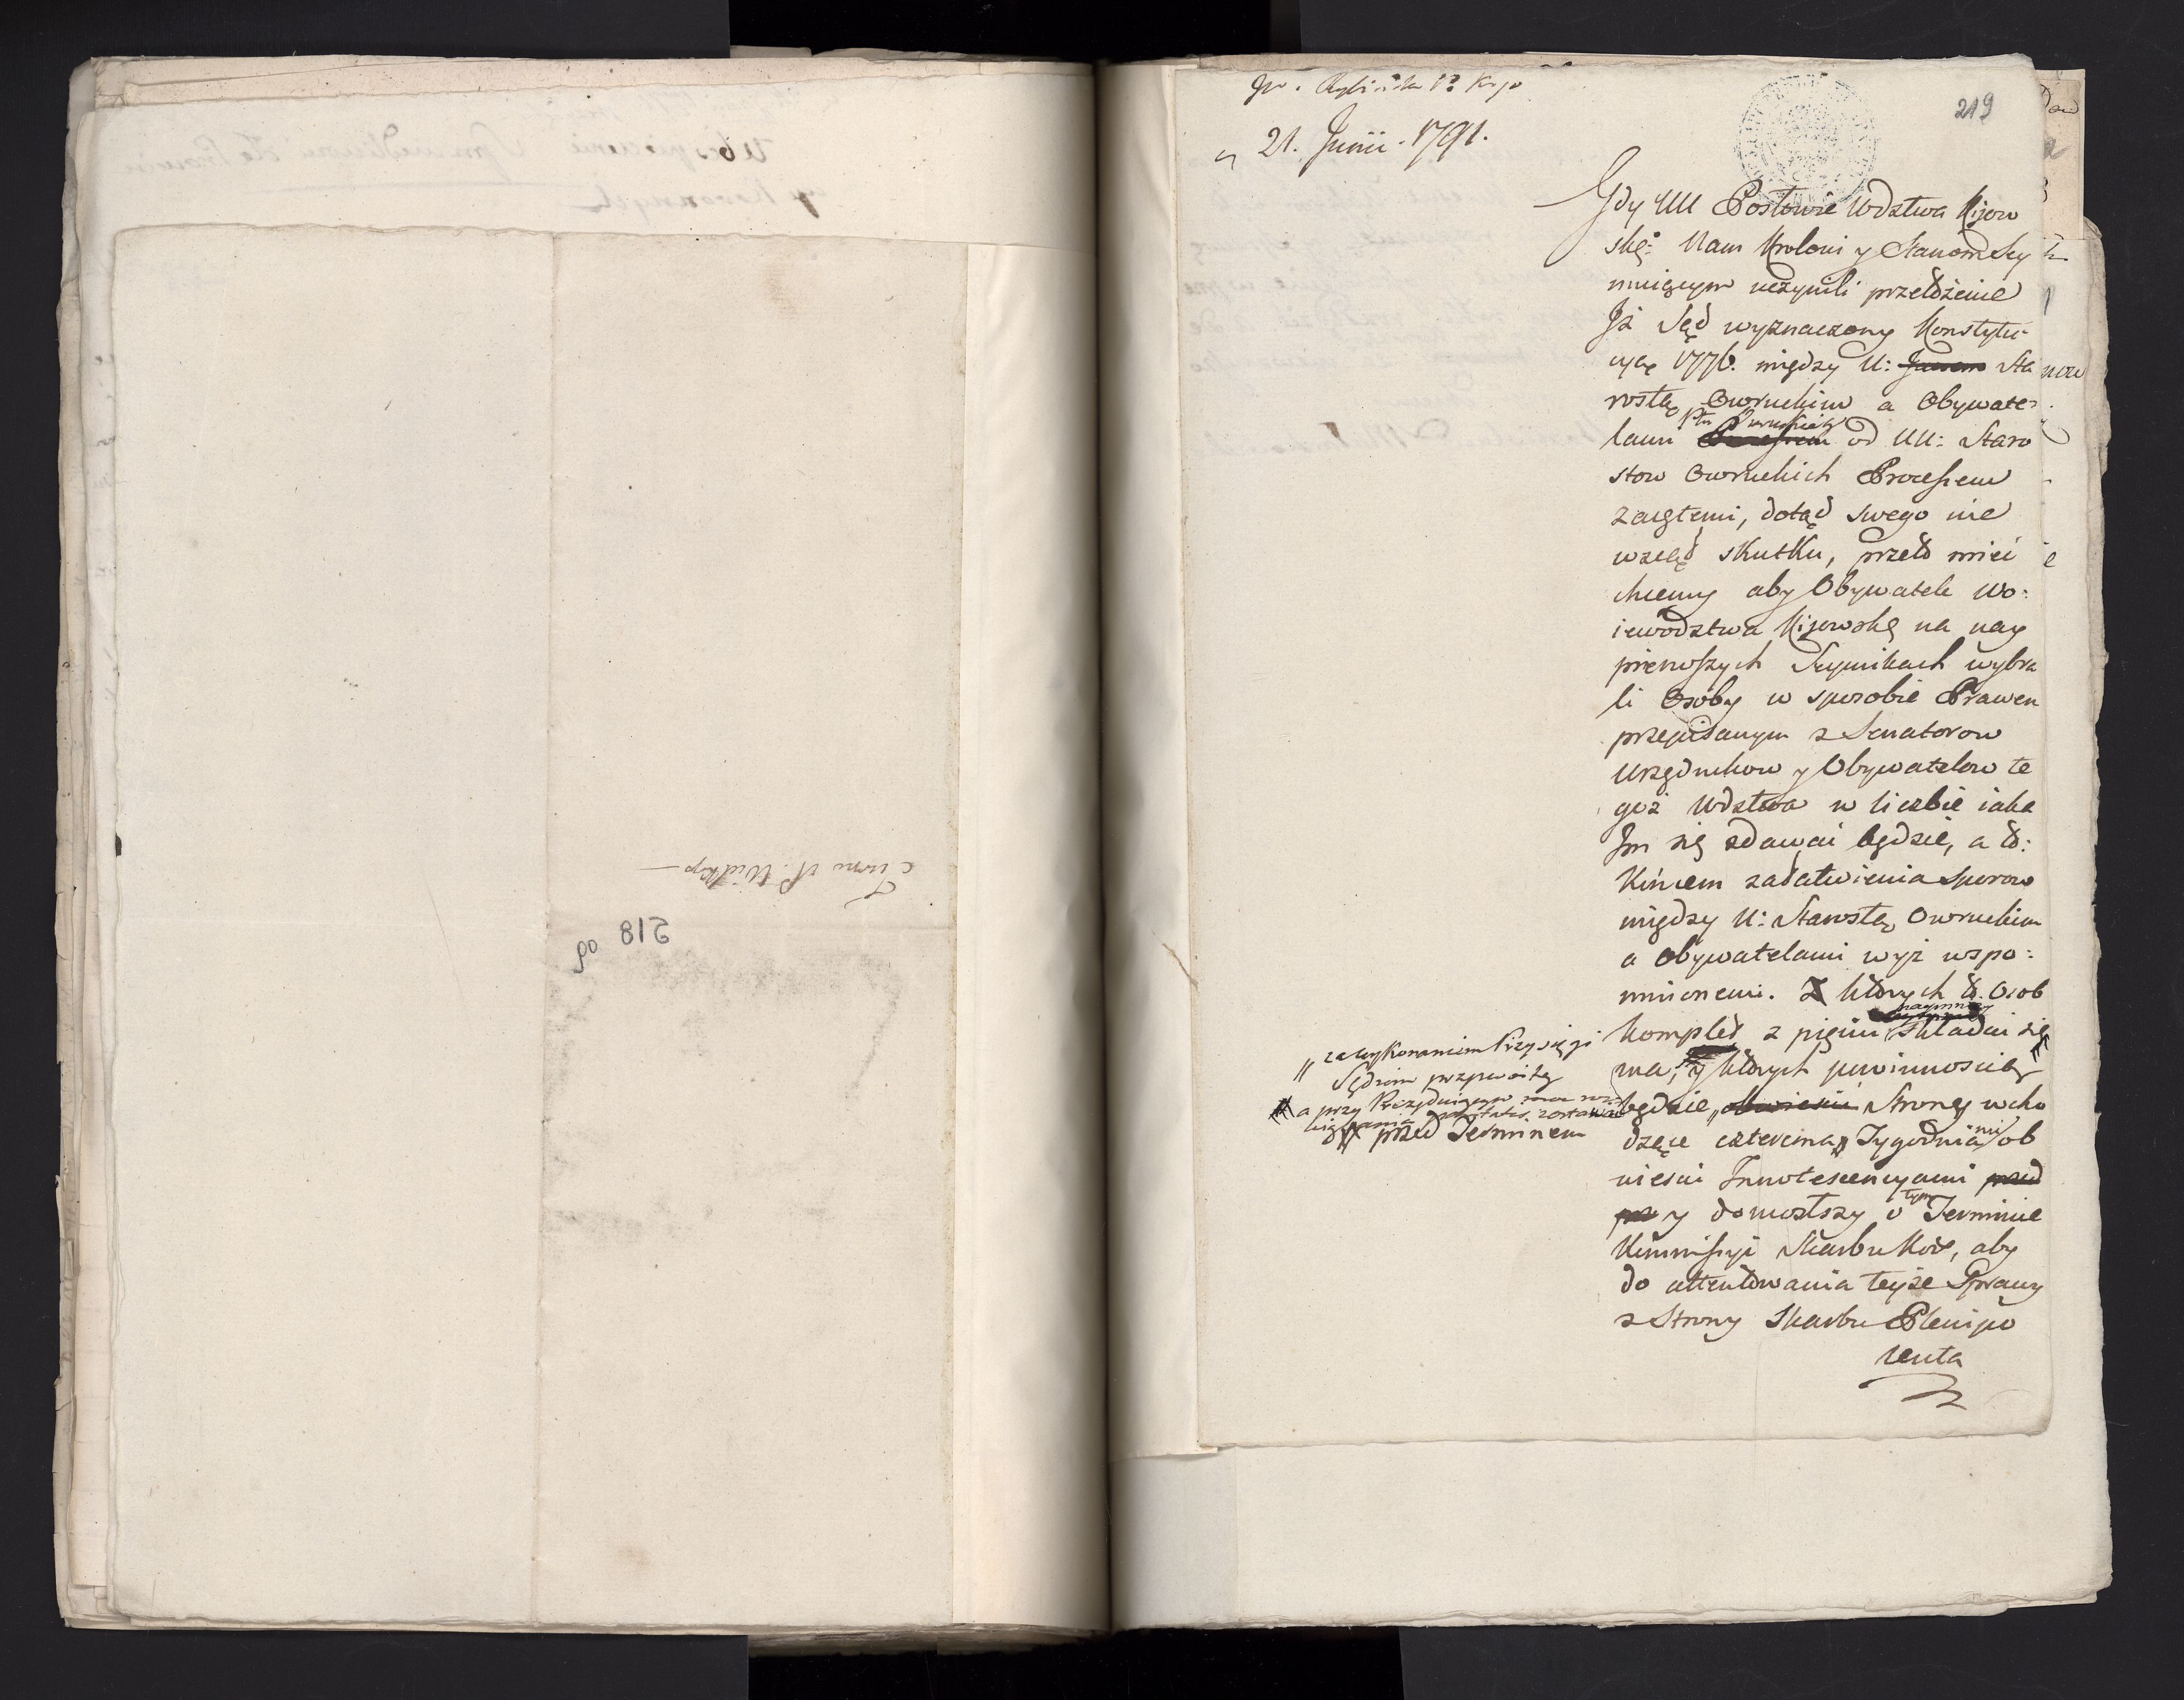 218
219
21. Junii. 1791.
Gdy UU Posłowie Wdztwa Kijow
skę: Nam Krolowi y Stanom Sey
muiącym uczynili przełożenie
Iż Sąd wyznaczony Konstytu-
cyą 1776. między U: Janem Sta
rostą Owruckim a Obywate-
lami Ptu Owruckieg od UU: Staro
stow Owruckich Processem
zaiętemi, dotąd swego nie
wziął skutku, przeto mieć
chcemy aby Obywatele Wo:
iewodztwa Kijowskę na nay
pierwszych Seymikach wybra
li Osoby w sposobie Prawem
przepisanym z Senatorow
Urzędnikow y Obywatelow te
goż Wdztwa w liczbie iaka
Im się zdawać będzie, a to:
Końcem załatwienia Sporow
między U: Starostą Owruckim
a Obywatelami wyż wspo:
mnionemi. Z ktorych to. Osob
naymniey
Komplet z pięciu składać się
ma, y ktorych powinnoscią
będzie „ obwiescić Strony wcho
dzące czterema Tygodniami ob
wiescić Innotescencyami przed
prz y doniosłszy o tym Terminie
Kommissyi Skarbu Kor, aby
do attentowania teyże Sprawy
z Strony Skarbu Plenipo
tenta
„ za wykonaniem Przysięgi
Sędziom przyzwoitey
a przy Prezyduiącym
zostawać
przed Terminem